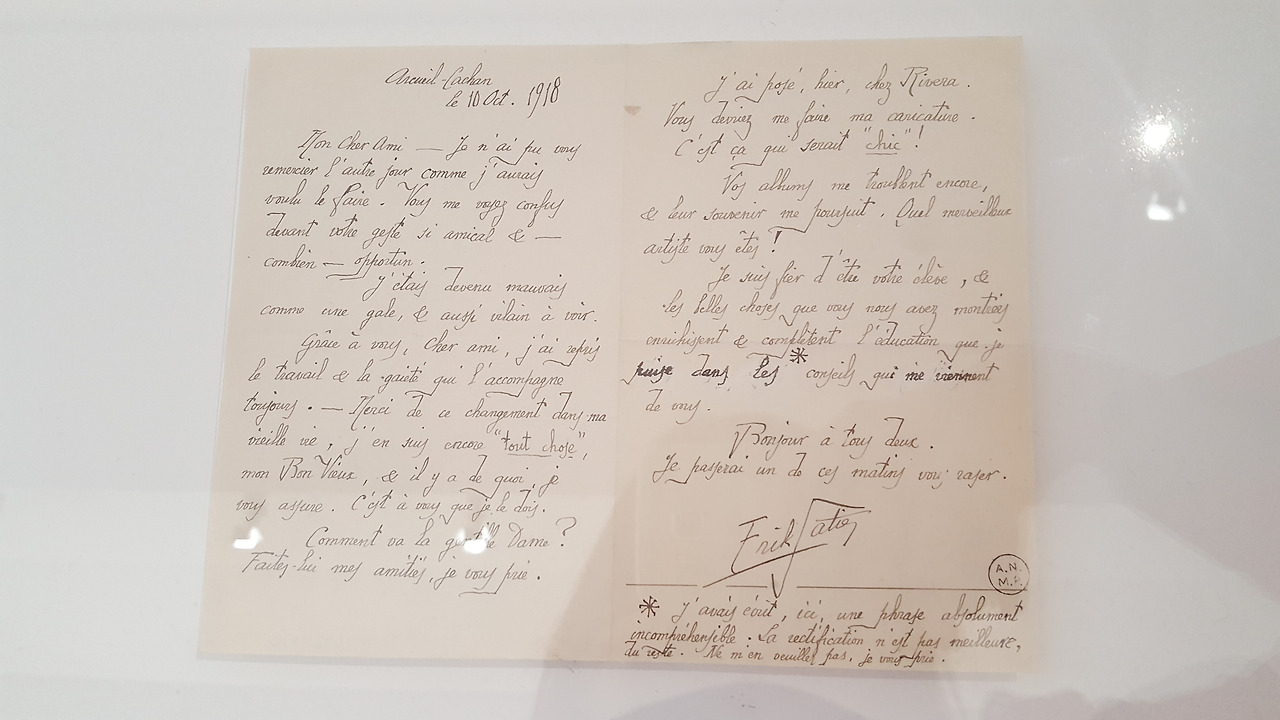 Arcueil-Cachan
le 10 Oct. 1918
Mon Cher Ami — Je n'ai pu vous
remercier l'autre jour comme j'aurais
voulu le faire. Vous me voyez confus
devant votre geste si amical & —
combien — opportun.
J'étais devenu mauvais
comme une gale, & aussi vilain à voir.
Grâce à vous, cher ami, j'ai repris
le travail & la gaieté qui l'accompagne
toujours. — Merci de ce changement dans ma
vieille vie, j'en suis encore "tout chose",
mon Bon Vieux, & il y a de quoi, je
vous assure. C'est à vous que je le dois.
Comment va la gentille Dame ?
Faites-lui mes amitiés, je vous prie.
J'ai posé, hier, chez Rivera.
Vous devriez me faire ma caricature.
C'est ça qui serait "chic" !
Vos albums me troublent encore,
& leur souvenir me poursuit. Quel merveilleux
artiste vous êtes !
Je suis fier d'être votre élève, &
les belles choses que vous nous avez montrées
enrichissent & complètent l'éducation que je
puise dans les * conseils qui me viennent
de vous.
Bonjour à tous deux.
Je passerai un de ces matins vous raser.
Erik Satie
A.N.
M.P.
* J'avais écrit, ici, une phrase absolument
incompréhensible. La rectification n'est pas meilleure,
du reste. Ne m'en veuillez pas, je vous prie.